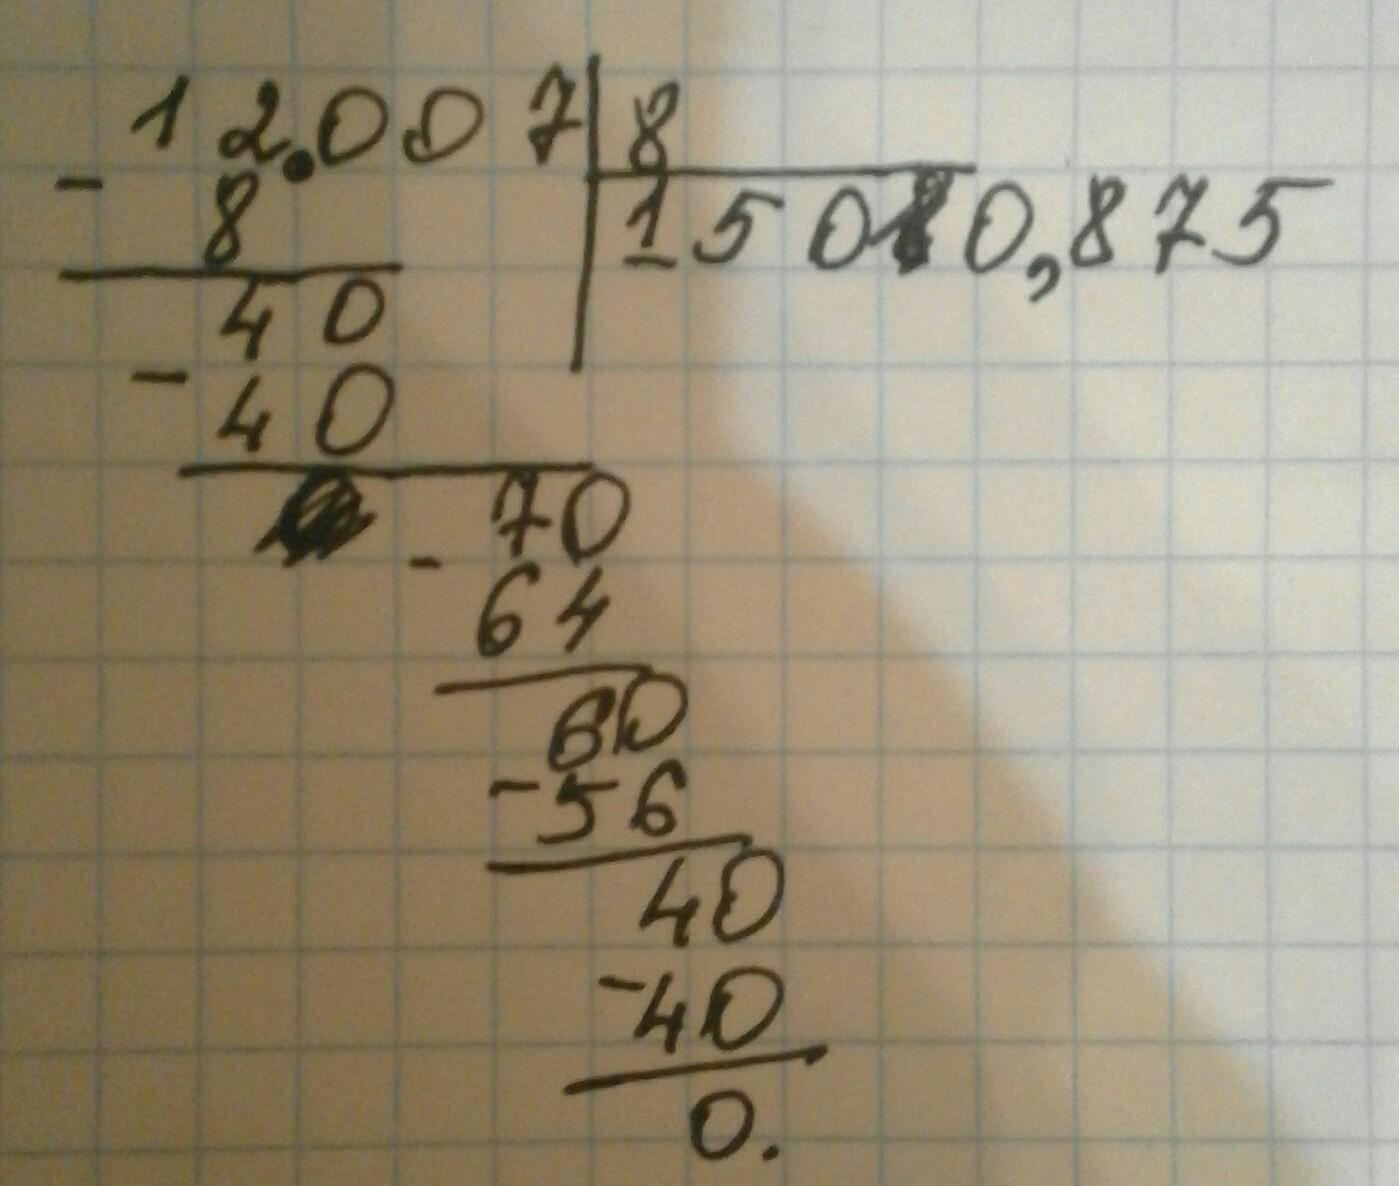 12.007 8
- 8 1500,875
40
- 40
70
- 64
60
- 56
40
- 40
0.